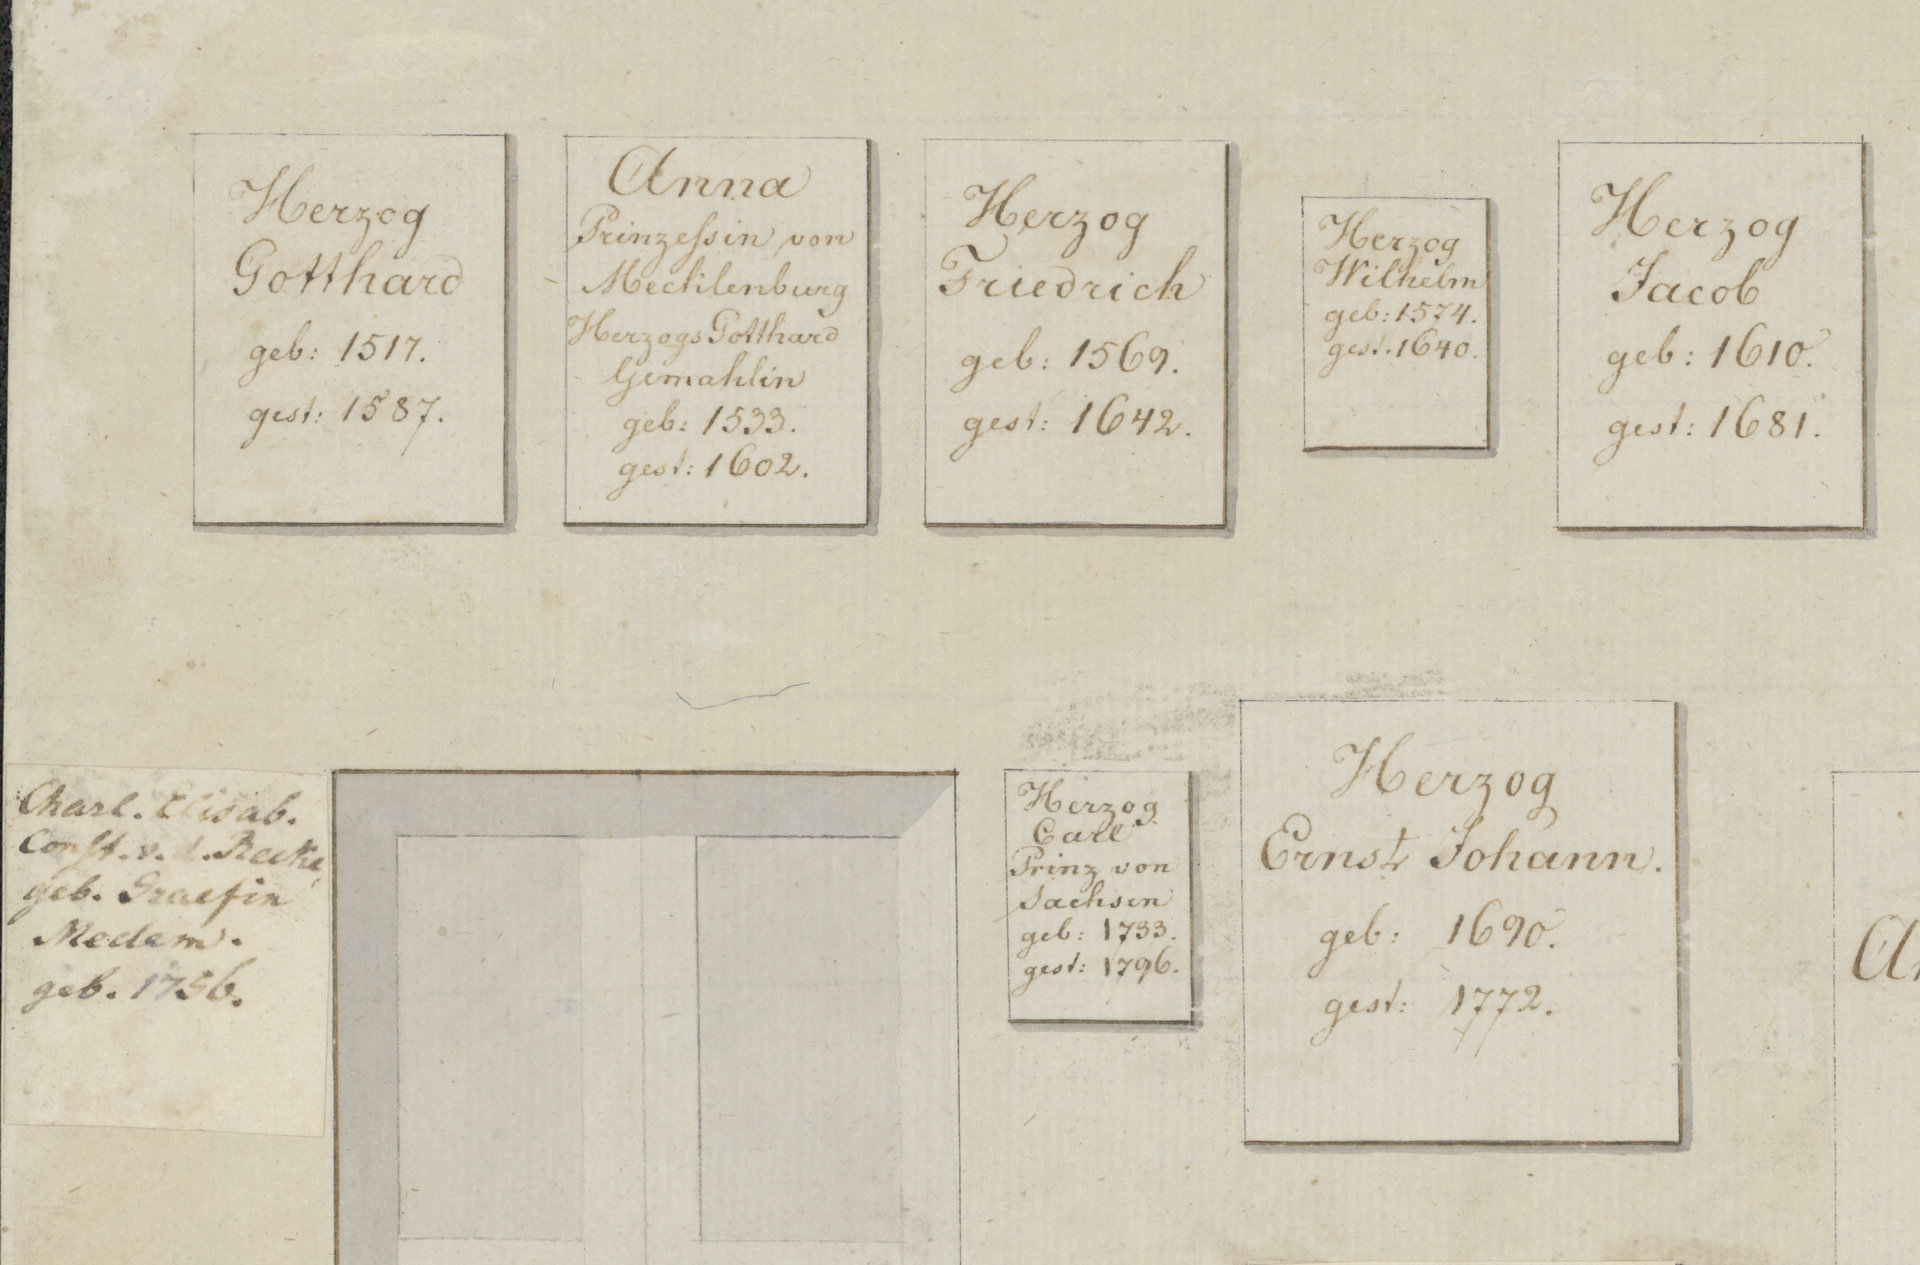 Herzog
Gotthard
geb: 1517.
gest: 1587.
Anna
Prinzessin von
Mecklenburg
Herzogs Gotthard
Gemahlin
geb: 1533.
gest: 1602.
Herzog
Friedrich
geb: 1569.
gest: 1642.
Herzog
Wilhelm
geb: 1574.
gest. 1640.
Herzog
Jacob
geb: 1610.
gest: 1681.
Charl. Elisab.
Const. v. d. Recke,
geb. Graefin
Medem.
geb. 1756.
Herzog
Carl
Prinz von
Sachsen
geb: 1733.
gest: 1796.
Herzog
Ernst Johann.
geb: 1690.
gest: 1772.